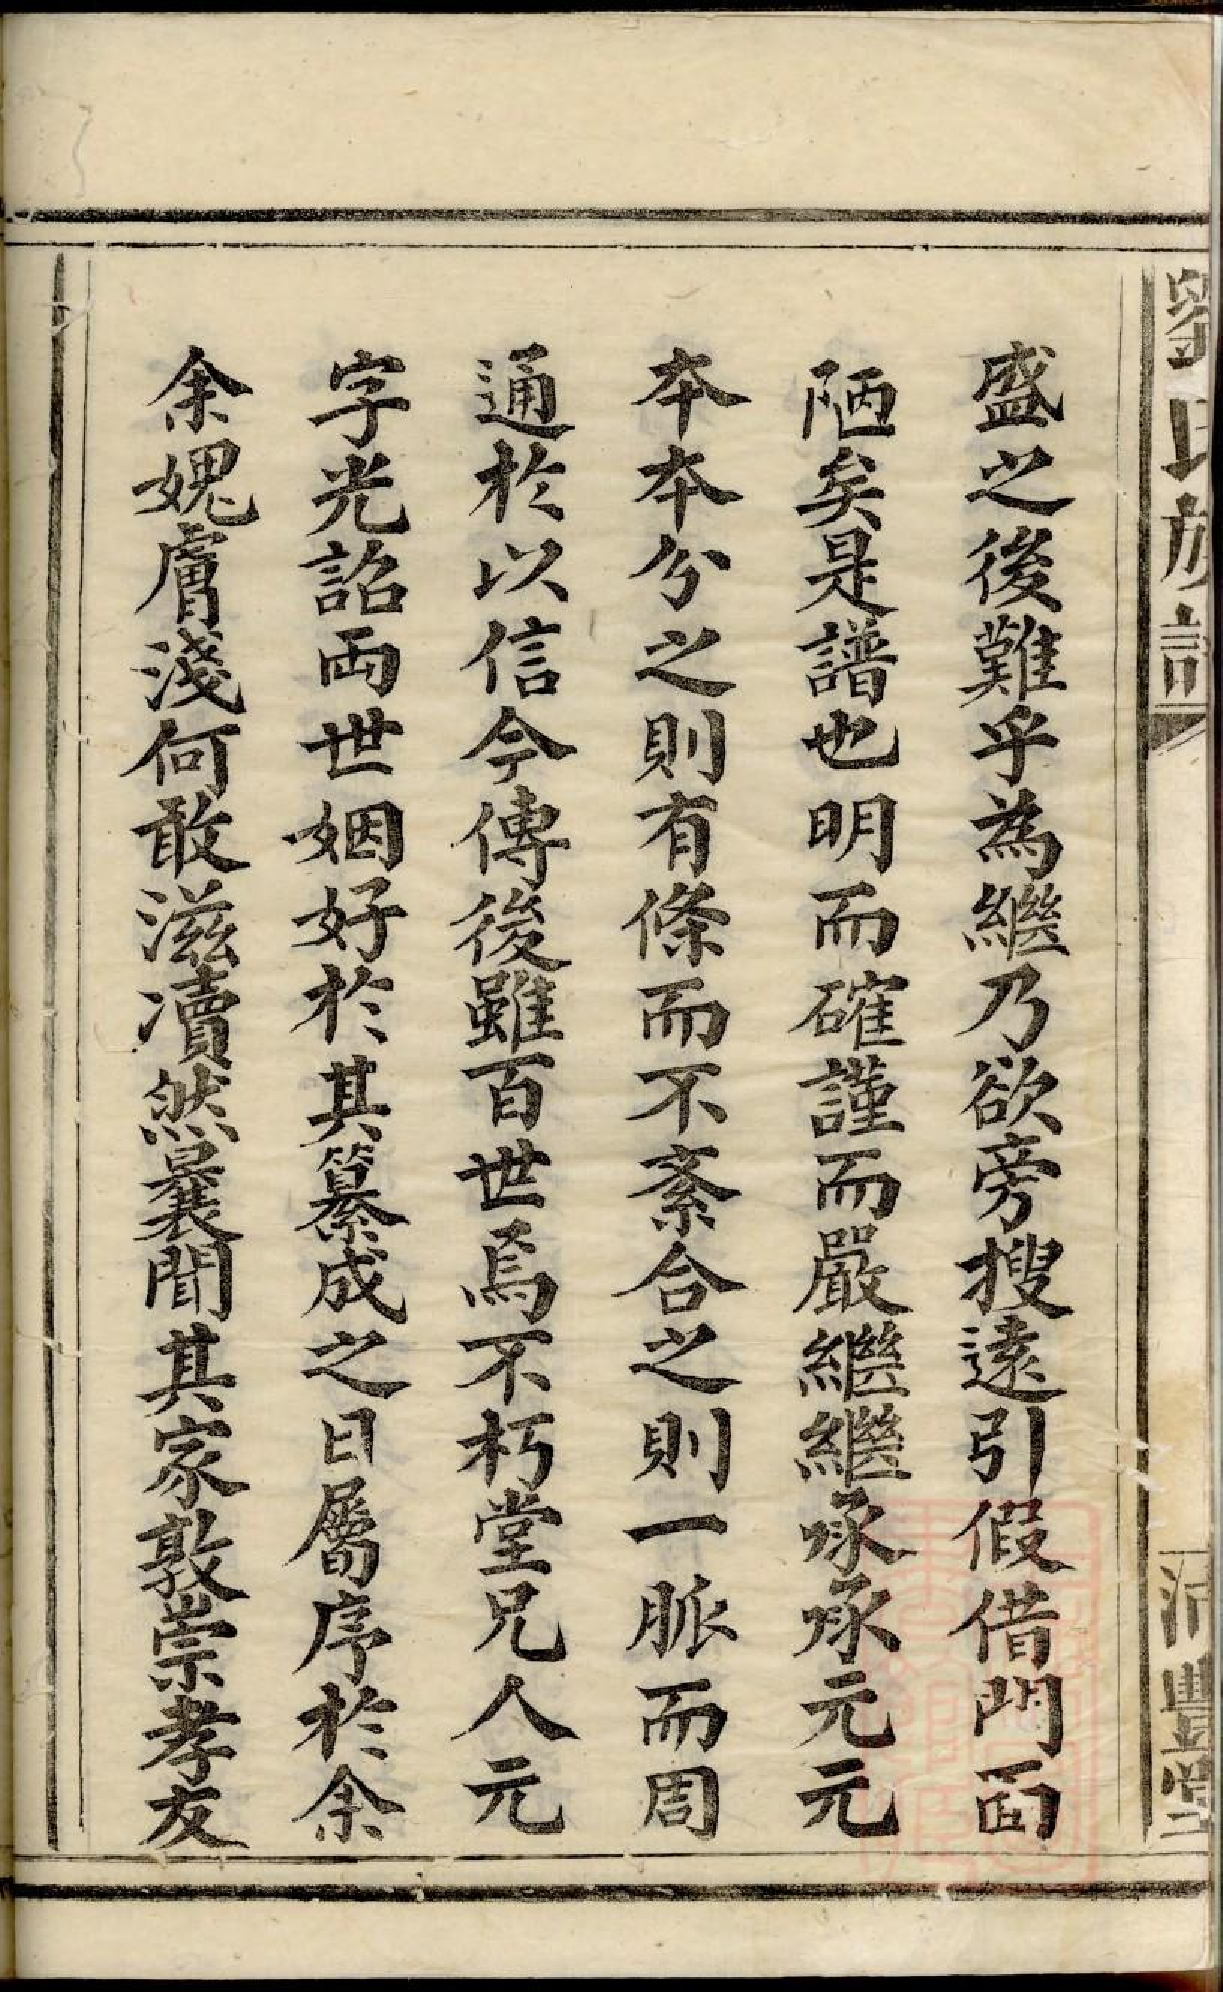 劉氏族譜
沛豊堂
盛之後難乎為繼乃欲旁搜遠引假借門面
陋矣是譜也明而確謹而嚴繼繼承承元元
本本分之則有條而不紊合之則一脈而周
通於以信今傳後雖百世焉不朽堂兄人元
字光詔両世姻好於其纂成之日屬序於余
余媿膚淺何敢滋凟然曩聞其家敦崇孝友